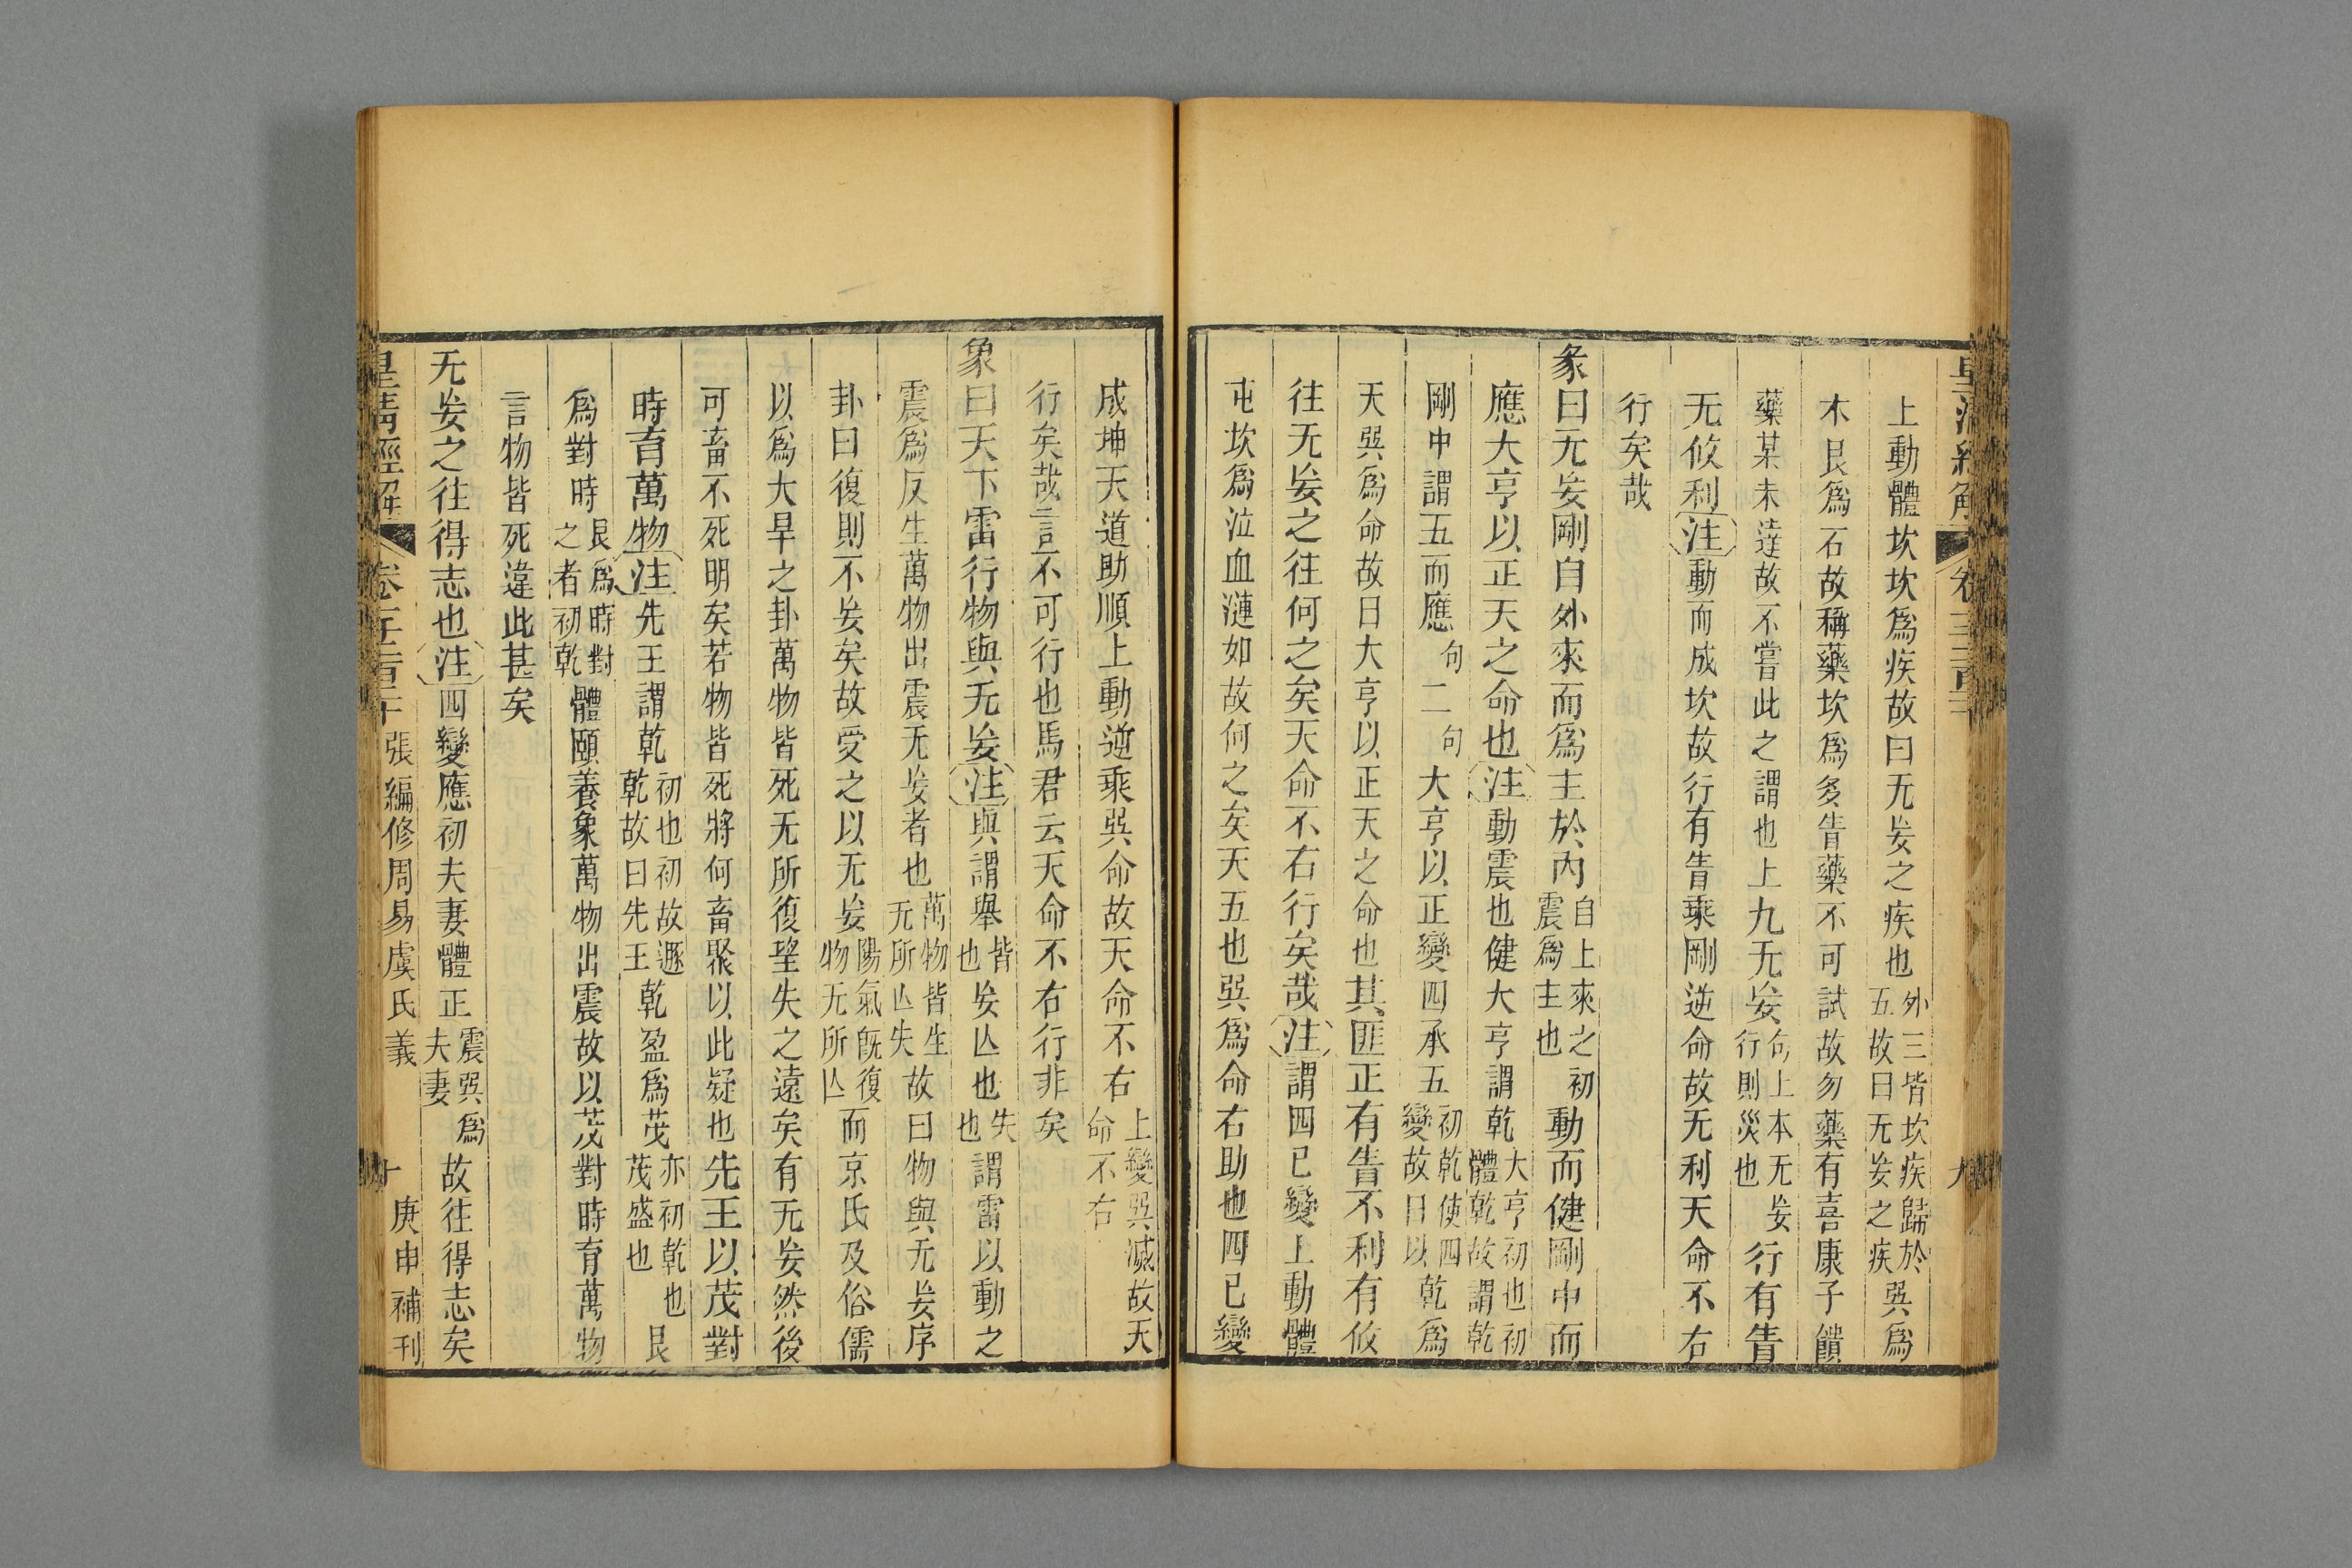 上動體坎坎爲疾故曰无妄之疾也外三皆坎疾歸於五故曰无妄之疾巽爲
木艮爲石故稱藥坎爲多眚藥不可試故勿藥有喜康子饋
藥某未達故不嘗此之謂也上九无妄句上本无妄行則災也行有眚
无攸利注動而成坎故行有眚乘剛逆命故无利天命不右
行矣哉
彖曰无妄剛自外來而爲主於內自上來之初震爲主也動而健剛中而
應大亨以正天之命也注動震也健大亨謂乾大亨初也初體乾故謂乾
剛中謂五而應句二句大亨以正變四承五初乾使四變故曰以乾爲
天巽爲命故曰大亨以正天之命也其匪正有眚不利有攸
往无妄之往何之矣天命不右行矣哉注謂四已變上動體
屯坎爲泣血漣如故何之矣天五也巽爲命右助也四已變
成坤天道助順上動逆乘巽命故天命不右上變巽滅故天命不右
行矣哉言不可行也馬君云天命不右行非矣
象曰天下雷行物與无妄注與謂舉皆也妄亾也失也謂雷以動之
震爲反生萬物出震无妄者也萬物皆生无所亾失故曰物與无妄序
卦曰復則不妄矣故受之以无妄陽氣旣復物无所亾而京氏及俗儒
以爲大旱之卦萬物皆死无所復望失之遠矣有无妄然後
可畜不死明矣若物皆死將何畜聚以此疑也先王以茂對
時育萬物注先王謂乾初也初故遯乾故曰先王乾盈爲茂亦初乾也茂盛也艮
爲對時艮爲時對之者初乾體頤養象萬物出震故以茂對時育萬物
言物皆死違此甚矣
无妄之往得志也注四變應初夫妻體正震巽爲夫妻故往得志矣
皇清經解 張編修周易虞氏義 十 庚申補刊